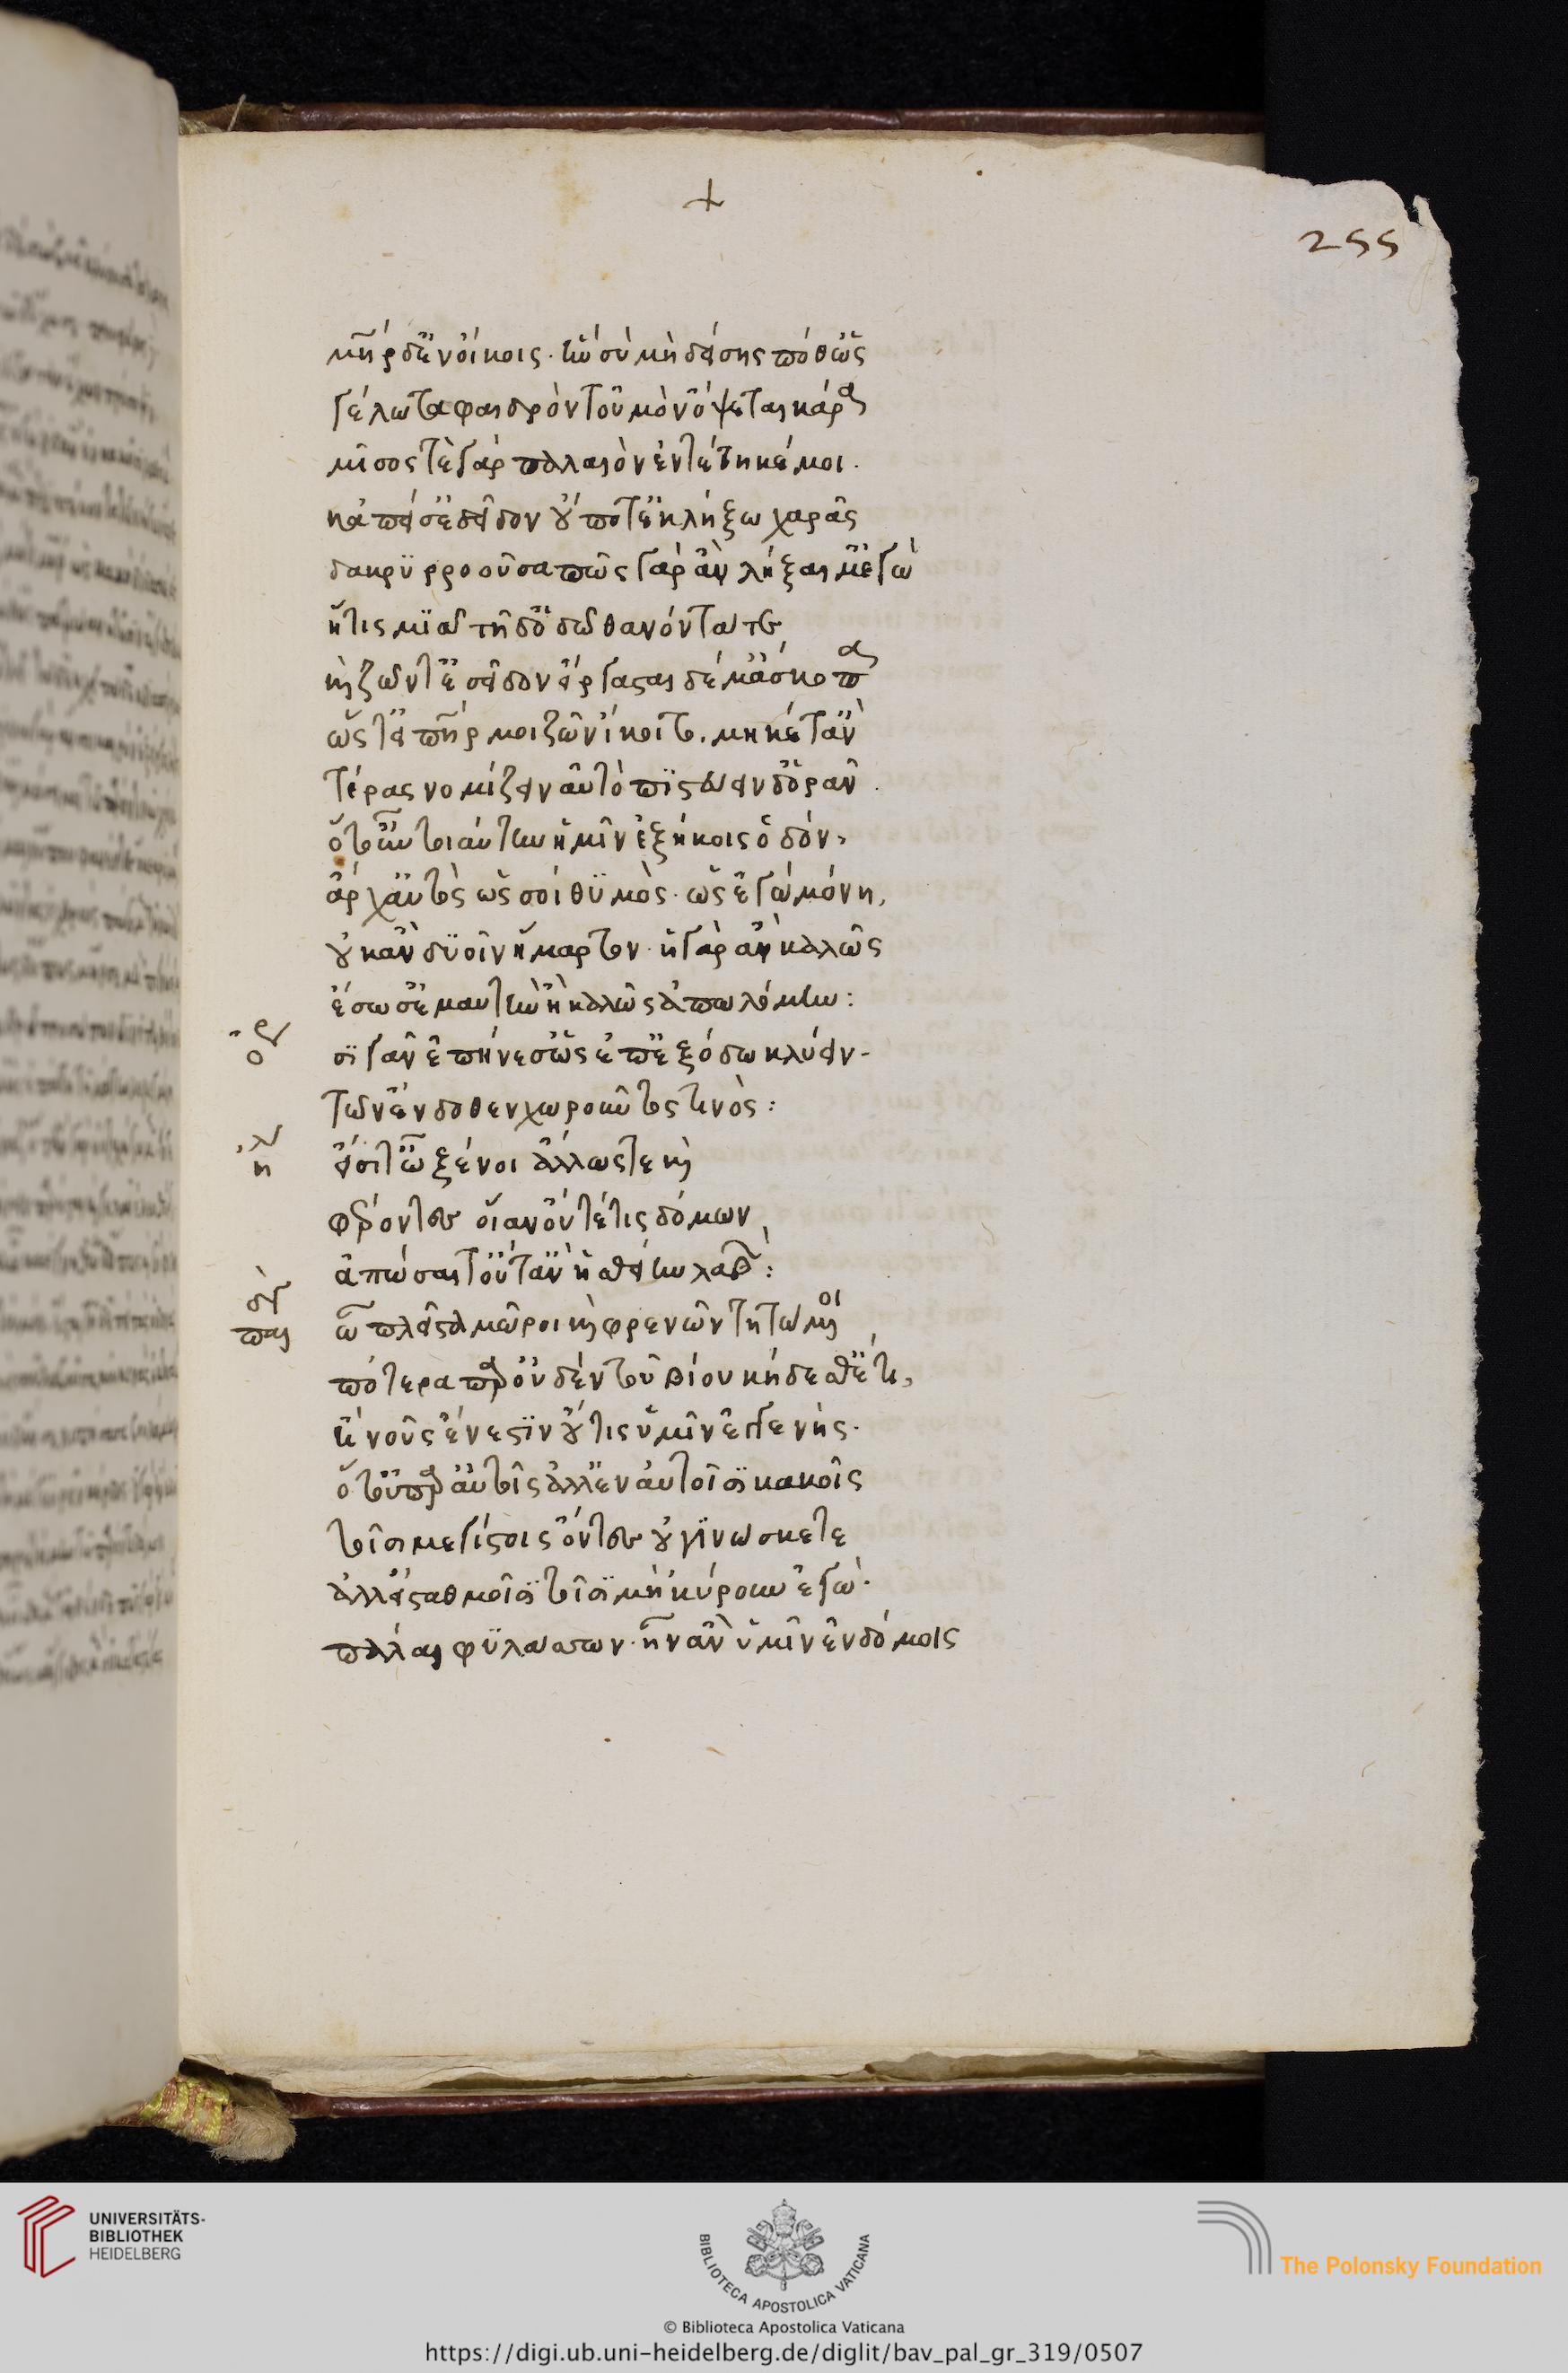 μηρ δ' ἐν οἴκοις· ἣν σὺ μὴ δείσης πόθ' ὡς
γέλωτα φαιδρὸν τοὐμὸν ὄψεται κάρα
μῖσος τὲ γὰρ παλαιὸν ἐντέτηκέ μοι.
κἀπεί σ' ἐσεῖδον οὔ ποτ' ἐκλήξω χαρᾶς
δακρυρροοῦσα πῶς γὰρ ἂν λήξαιμ' ἐγὼ
ἥτις μιᾶ τῆδ' ὁδῶ θανόντα τε
καὶ ζῶντ' ἐσεῖδον εἴργασαι δέ μ' ἄσκοπα
ὥστ' εἰ πηρ μοι ζῶν ἵκοιτο. μηκέτ' ἂν
τέρας νομίζειν αὐτὸ πιστεύειν δ' ὁρᾶν.
ὅτ' οὖν τοιαύτην ἡμῖν ἐξήκοις ὁδόν,
ἄρχ' αὐτὸς ὥς σοί θυμὸς· ὡς ἐγὼ μόνη,
οὐκ ἂν δυοῖν ἥμαρτον· ἢ γὰρ ἂν καλῶς
ἔσωσ' ἐμαυτὴν ἢ καλῶς ἀπωλόμην:
ὀρ σιγᾶν ἐπήνεσ' ὡς ἐπ' ἐξόδω κλύειν
τῶν ἔνδοθεν χωροῦντος τινὸς:
ἠλ εἴσιτ' ὦ ξένοι ἄλλως τε καὶ
φέροντες οἷ' ἂν οὔτέ τις δόμων
ἀπώσαιτ' οὔτ' ἂν ἡσθείη λαβών:
παιδ ὦ πλεῖστα μῶροι καὶ φρενῶν τητώμενοι
πότερα παρ' οὐδὲν τοῦ βίου κήδεσθ' ἔτι,
ἢ νοῦς ἔνεστιν οὔτις ὑμῖν ἐγγενής.
ὅτ' οὐ παρ' αὐτοῖς ἀλλ' ἐν αὐτοῖσι κακοῖς
τοῖσι μεγίστοις ὄντες οὐ γινώσκετε
ἀλλ' εἰ σταθμοῖσι τοῖσι μὴ κύρουν ἐγὼ.
πάλαι φυλάσσων· ἦν ἂν ὑμῖν ἐν δόμοις
255
UNIVERSITÄTS-
BIBLIOTHEK
HEIDELBERG
BIBLIOTECA APOSTOLICA VATICANA
The Polonsky Foundation
© Biblioteca Apostolica Vaticana
https://digi.ub.uni-heidelberg.de/diglit/bav_pal_gr_319/0507